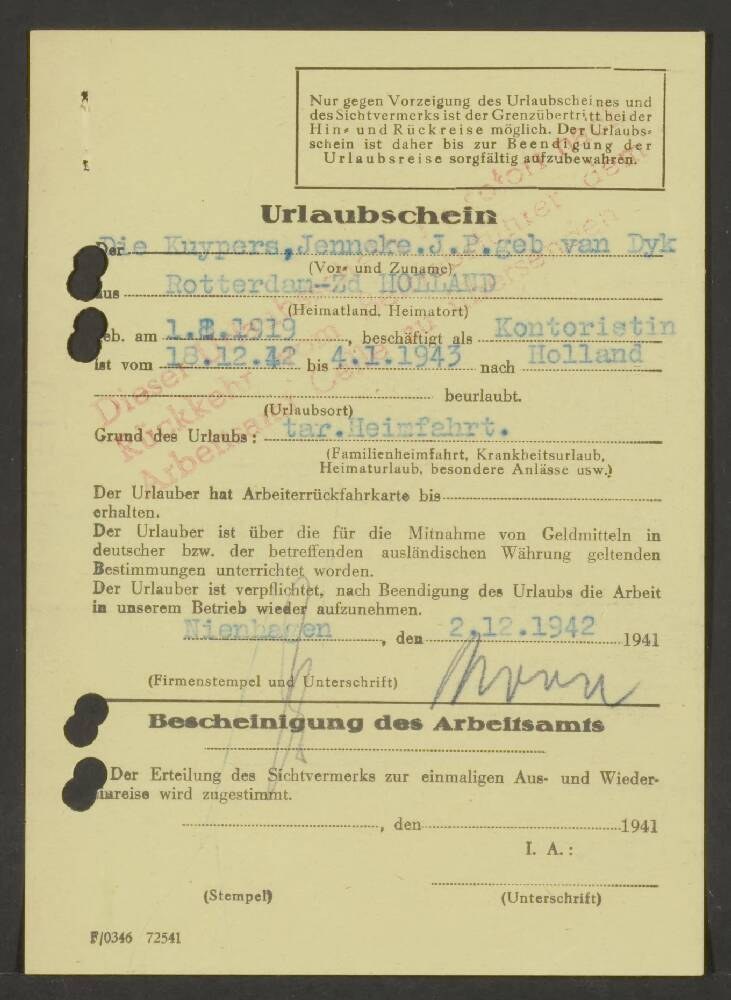 Nur gegen Vorzeigung des Urlaubscheines und
des Sichtvermerks ist der Grenzübertritt bei der
Hin- und Rückreise möglich. Der Urlaubs-
schein ist daher bis zur Beendigung der
Urlaubsreise sorgfältig aufzubewahren.
Urlaubschein
Der Die Kuypers, Jenneke.J.P.geb van Dyk
(Vor- und Zuname)
aus Rotterdam-Zd HOLLAND
(Heimatland, Heimatort)
geb. am 1.2.1919, beschäftigt als Kontoristin
ist vom 18.12.42 bis 4.1.1943 nach Holland
beurlaubt.
(Urlaubsort)
Grund des Urlaubs: tar.Heimfahrt.
(Familienheimfahrt, Krankheitsurlaub,
Heimaturlaub, besondere Anlässe usw.)
Der Urlauber hat Arbeiterrückfahrkarte bis
erhalten.
Der Urlauber ist über die für die Mitnahme von Geldmitteln in
deutscher bzw. der betreffenden ausländischen Währung geltenden
Bestimmungen unterrichtet worden.
Der Urlauber ist verpflichtet, nach Beendigung des Urlaubs die Arbeit
in unserem Betrieb wieder aufzunehmen.
Nienhagen, den 2.12.1942 1941
(Firmenstempel und Unterschrift)
Bescheinigung des Arbeitsamts
Der Erteilung des Sichtvermerks zur einmaligen Aus- und Wieder-
einreise wird zugestimmt.
, den 1941
I. A.:
(Stempel) (Unterschrift)
F/0346 72541
Dieser
Rückkehr
Arbeitsamt Celle zu